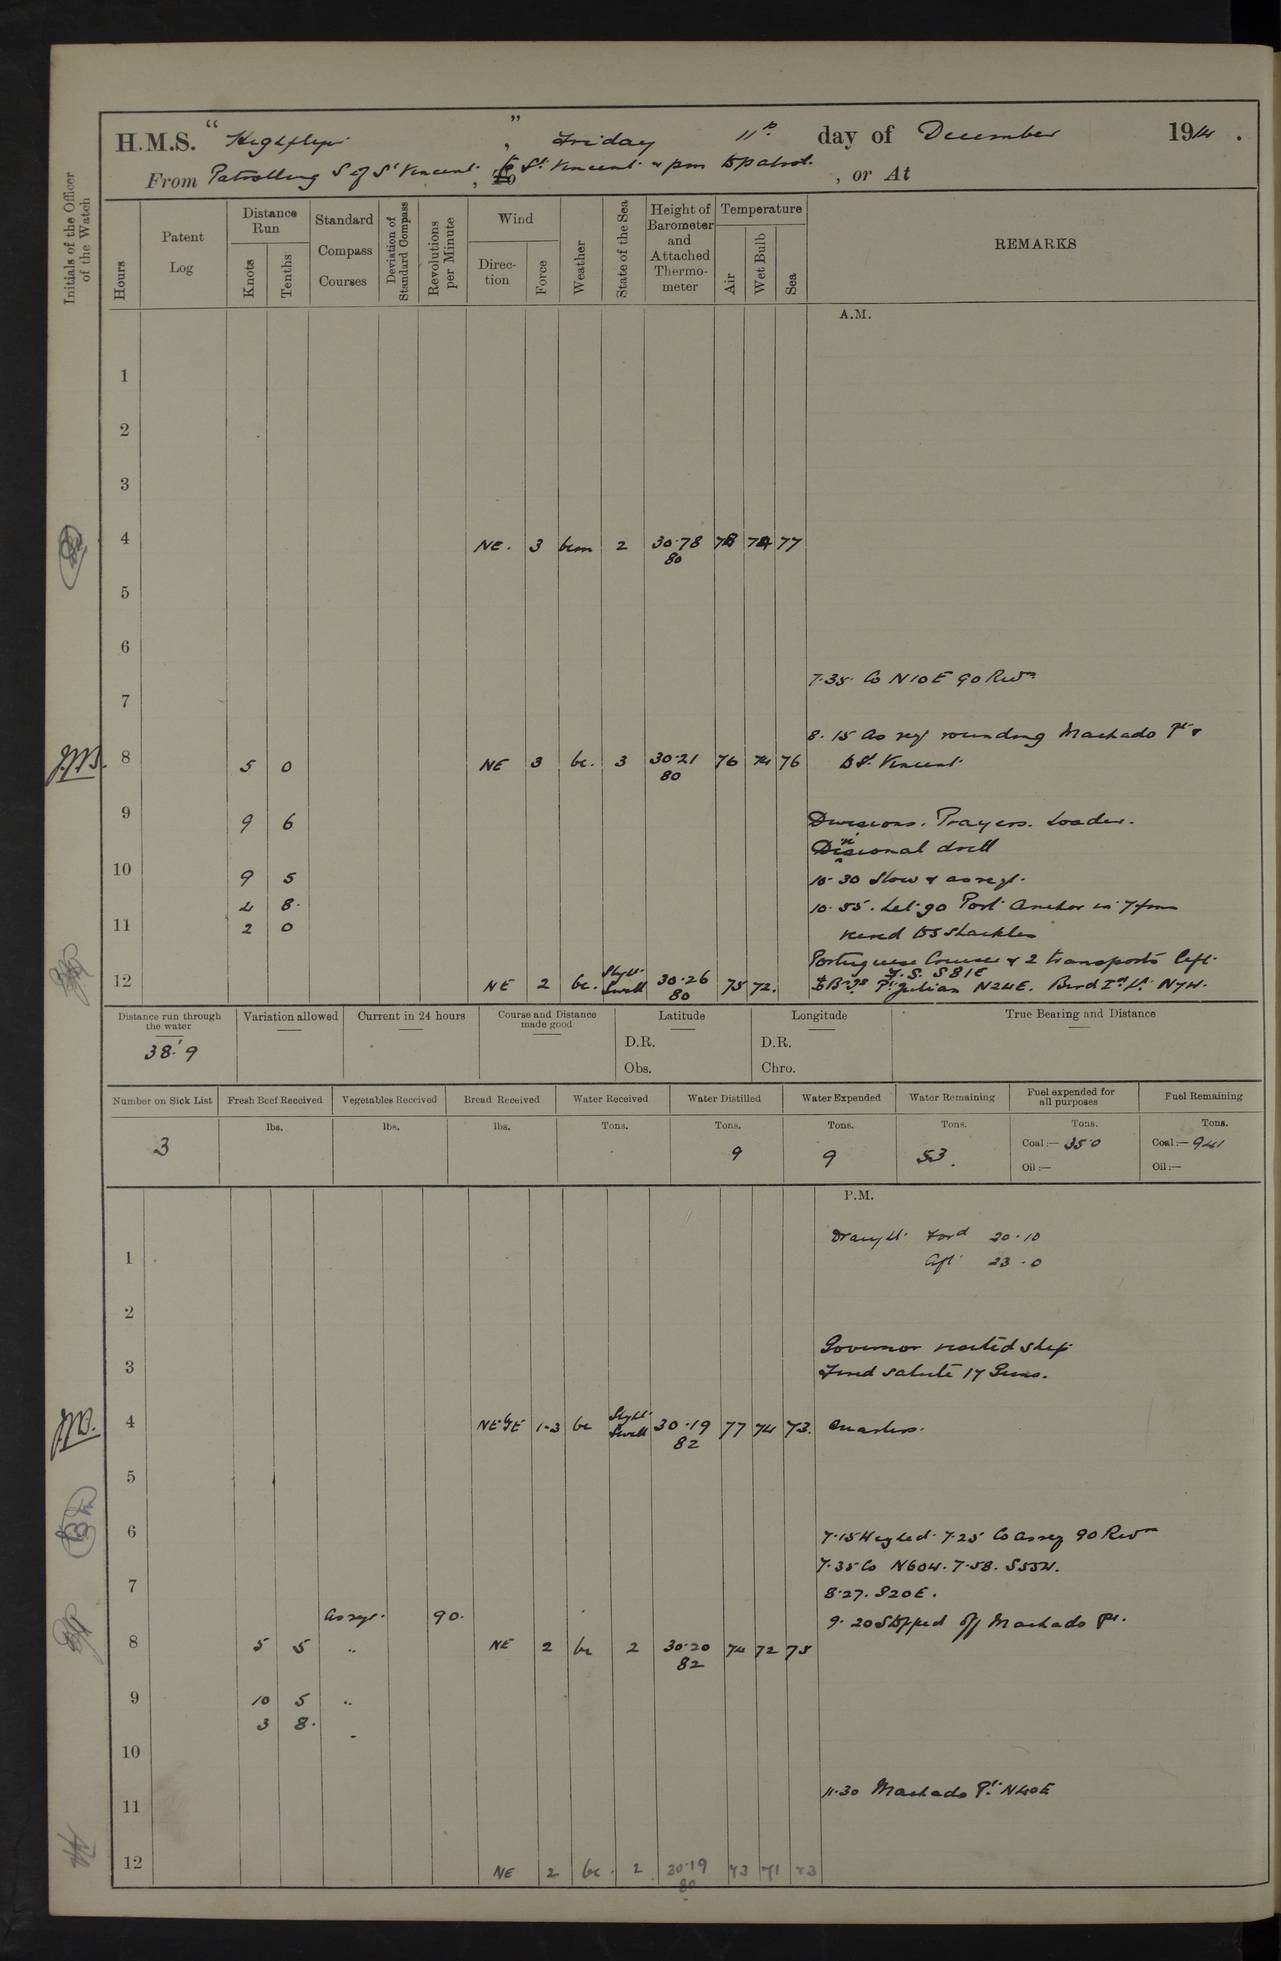 H.M.S. “Highflyer”, Friday 11th day of December 1914.
From Patrolling S of St Vincent, to St. Vincent & pm to patrol. , or At
Initials of the Officer of the Watch
Hours
Patent Log
Distance Run
Knots
Tenths
Standard Compass Courses
Deviation of Standard Compass
Revolutions per Minute
Wind
Direction
Force
Weather
State of the Sea
Height of Barometer and Attached Thermometer
Temperature
Air
Wet Bulb
Sea
REMARKS
A.M.
1
2
3
4 NE. 3 bcm 2 30.78 77
80
5
6
7.35. Co N10E 90 Revns
7
8.15 As req rounding Machado Pt &
8 5 0 NE 3 bc. 3 30.21 76 74 76 to St. Vincent.
80
9 9 6 Divisions. Prayers. Loader.
Divisional drill
10 9 5 10.30 Slow & as req.
4 8. 10.55. Let go Port Anchor in 7 fms
11 2 0 veered to 5 shackles
Portuguese Cruiser & 2 transports left.
F.S. S81E
12 NE 2 bc. Slight Swell 30.26 75 72. Brgs Pt Julian N24E. Bird Id Lt. N7W.
80
Distance run through the water
38.'9
Variation allowed
Current in 24 hours
Course and Distance made good
Latitude
D.R.
Obs.
Longitude
D.R.
Chro.
True Bearing and Distance
Number on Sick List
3
Fresh Beef Received
lbs.
Vegetables Received
lbs.
Bread Received
lbs.
Water Received
Tons.
Water Distilled
Tons.
9
Water Expended
Tons.
9
Water Remaining
Tons.
53.
Fuel expended for all purposes
Tons.
Coal:— 350
Oil:—
Fuel Remaining
Tons.
Coal:— 941
Oil:—
P.M.
Draught Ford 20.10
1 Aft 23.0
2
Governor visited ship
3 Fired salute 17 Guns.
4 NE'yE 1-3 bc Slight Swell 30.19 77 74 73. Quarters.
82
5
6 7.15 Weighed. 7.25 Co as req 90 Revns
7.35 Co N60W. 7.58. S55W.
7 8.27. S20E.
As req. 90. 9.20 Stopped off Machado Pt.
8 5 5 „ NE 2 bc 2 30.20 74 72 75
82
9 10 5 „
3 8.
10
11.30 Machado Pt. N40E
11
12 NE 2 bc. 2 30.19 73 71 73
80